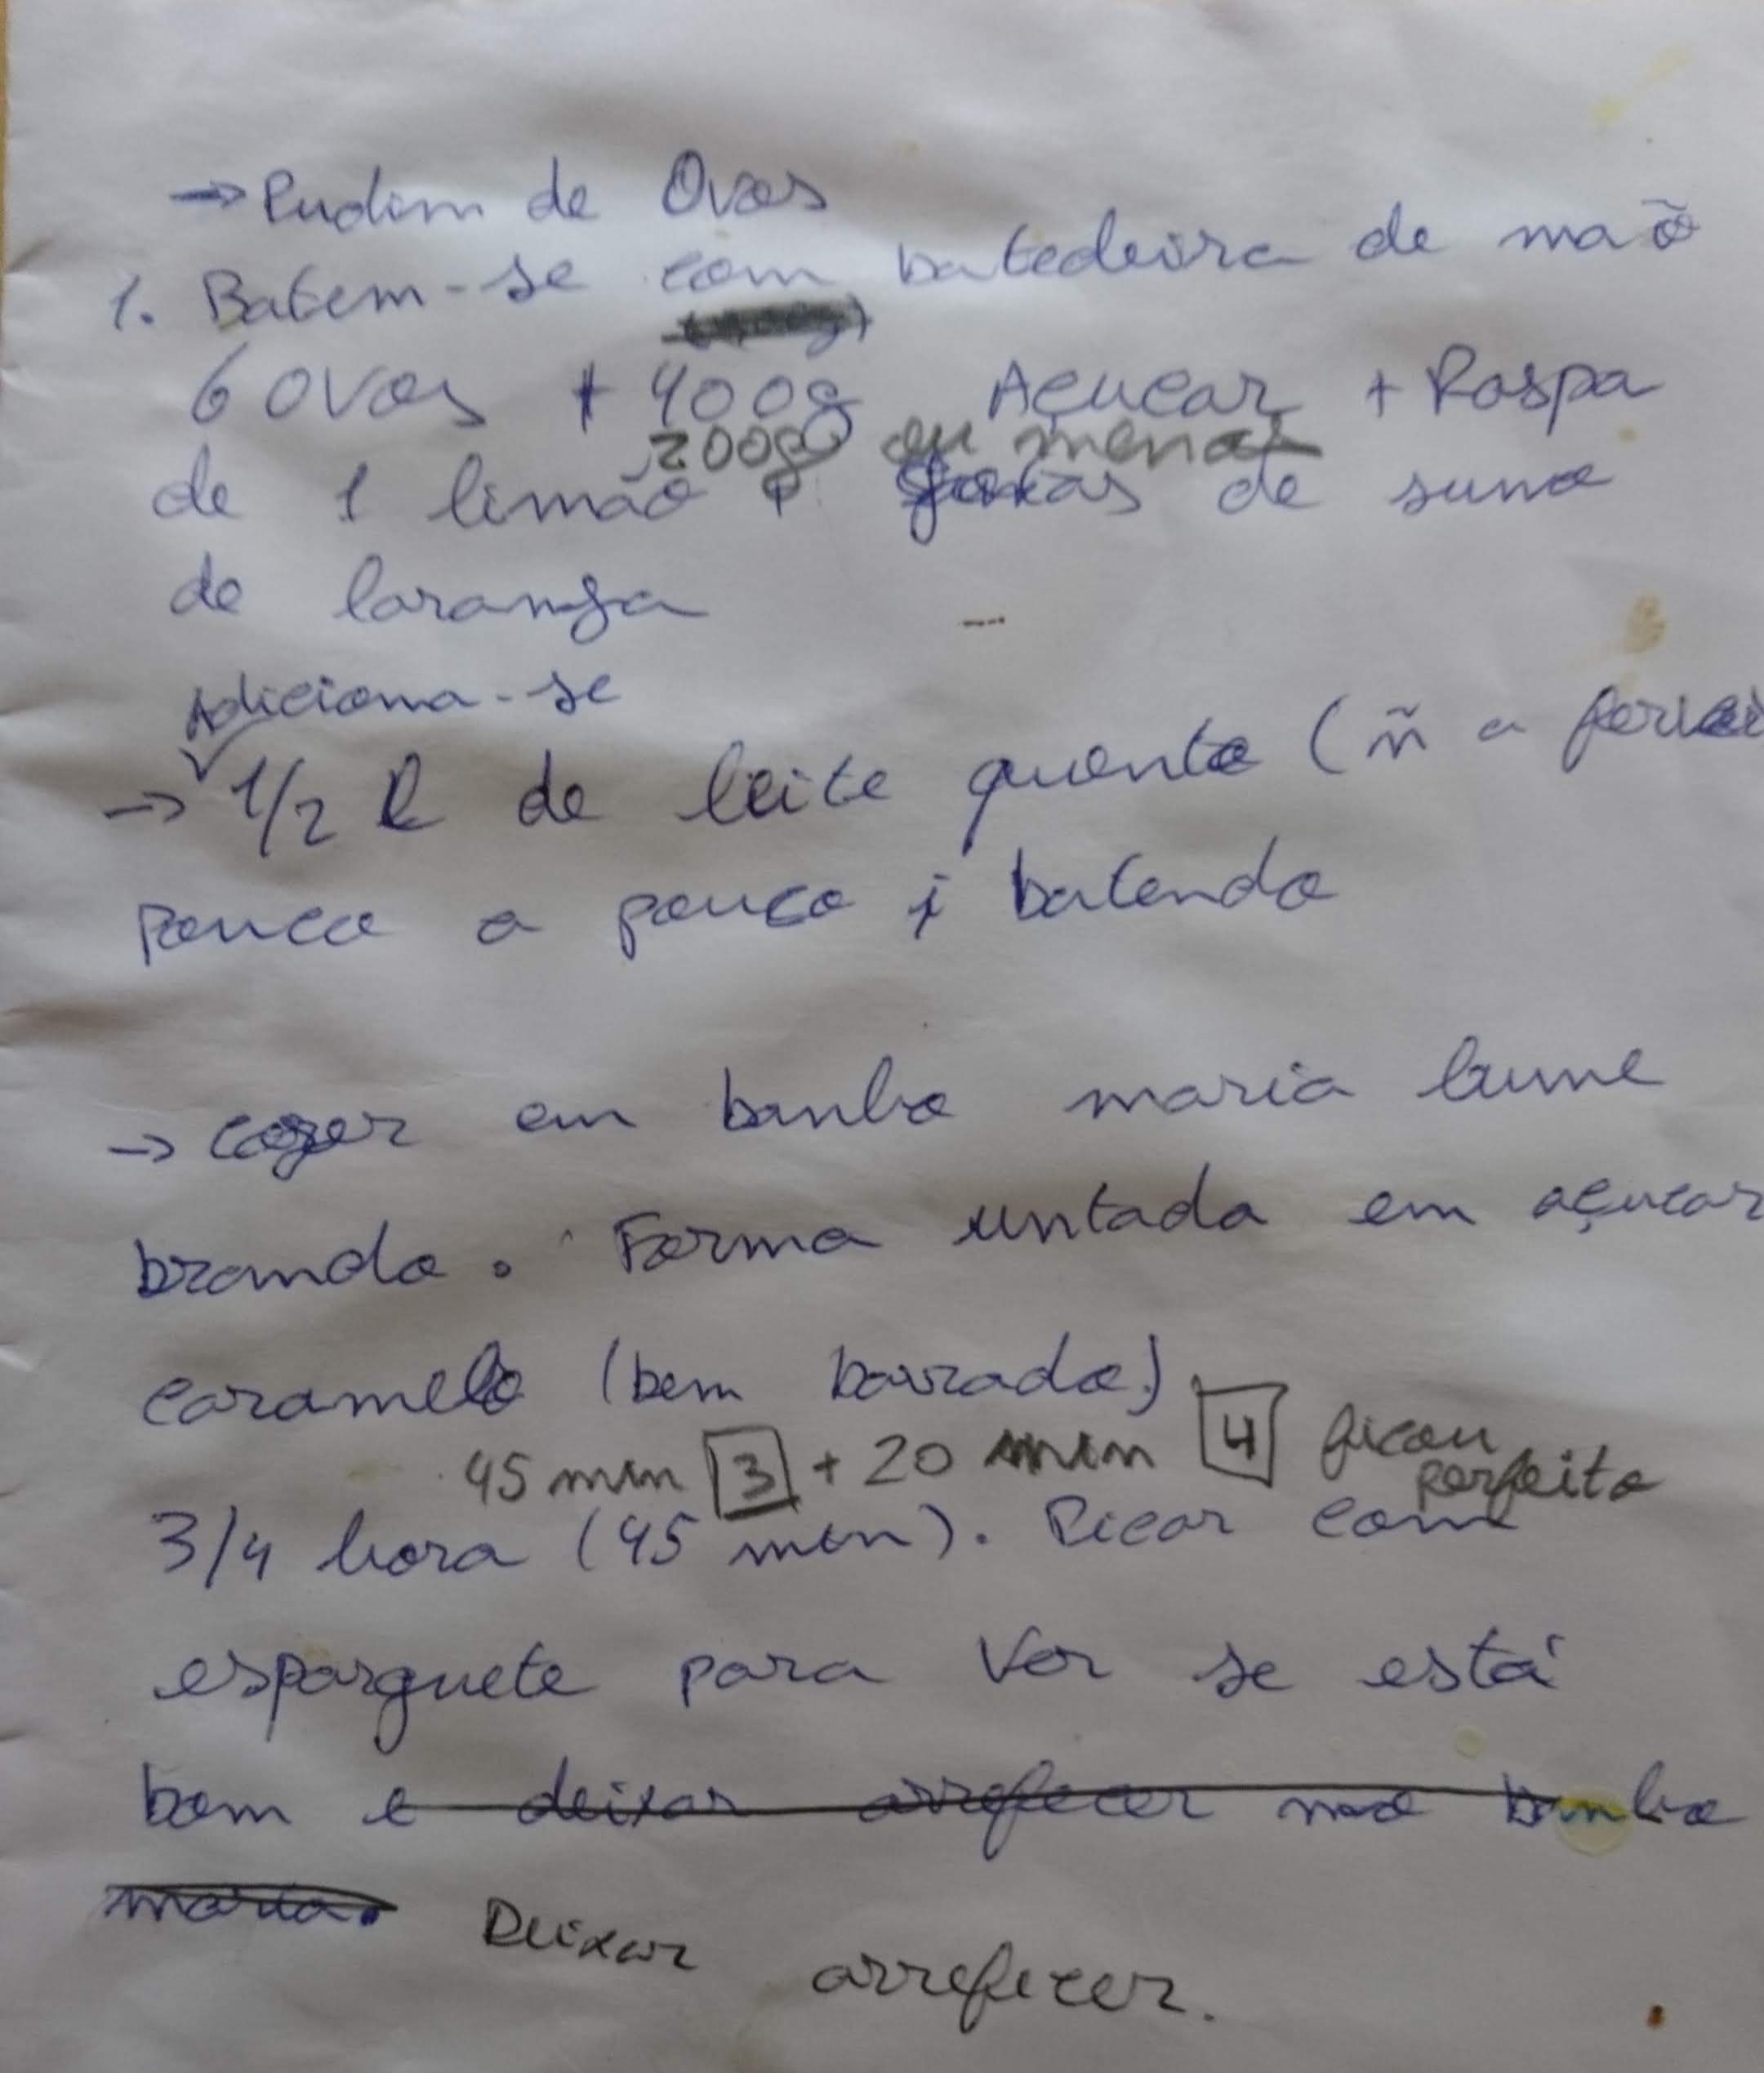 → Pudim de Ovos
1. Batem-se com batedeira de mão
6 Ovos + 400g Açucar + Raspa
200g ou menos
de 1 limão + gotas de sumo
de laranja
Adiciona-se
→ 1/2 l de leite quente (ñ a ferver
pouco a pouco e batendo
→ cozer em banho maria lume
brando. Forma untada em açucar
caramelo (bem barrada)
45 min 3 + 20 min 4 ficou
perfeito
3/4 hora (45 min). Picar com
esparguete para ver se está
bom e deixar arrefecer no banho
maria. Deixar arrefecer.